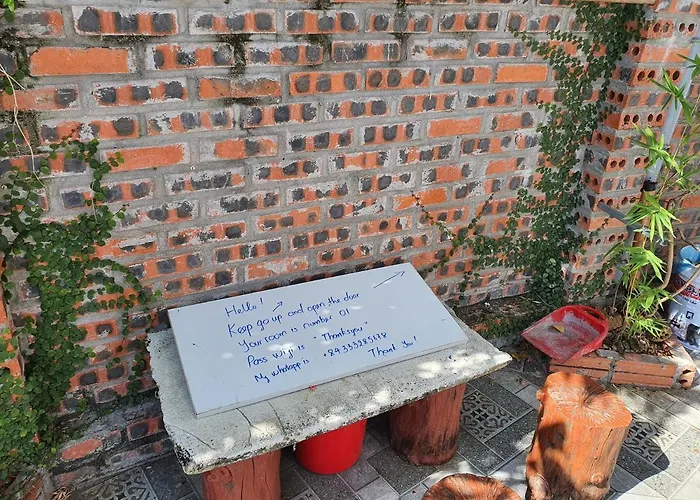 Hello!
Keep go up and open the door
Your room is number 01
Pass Wifi is "Thankyou"
My whatsapp is +84333285678 Thank You!